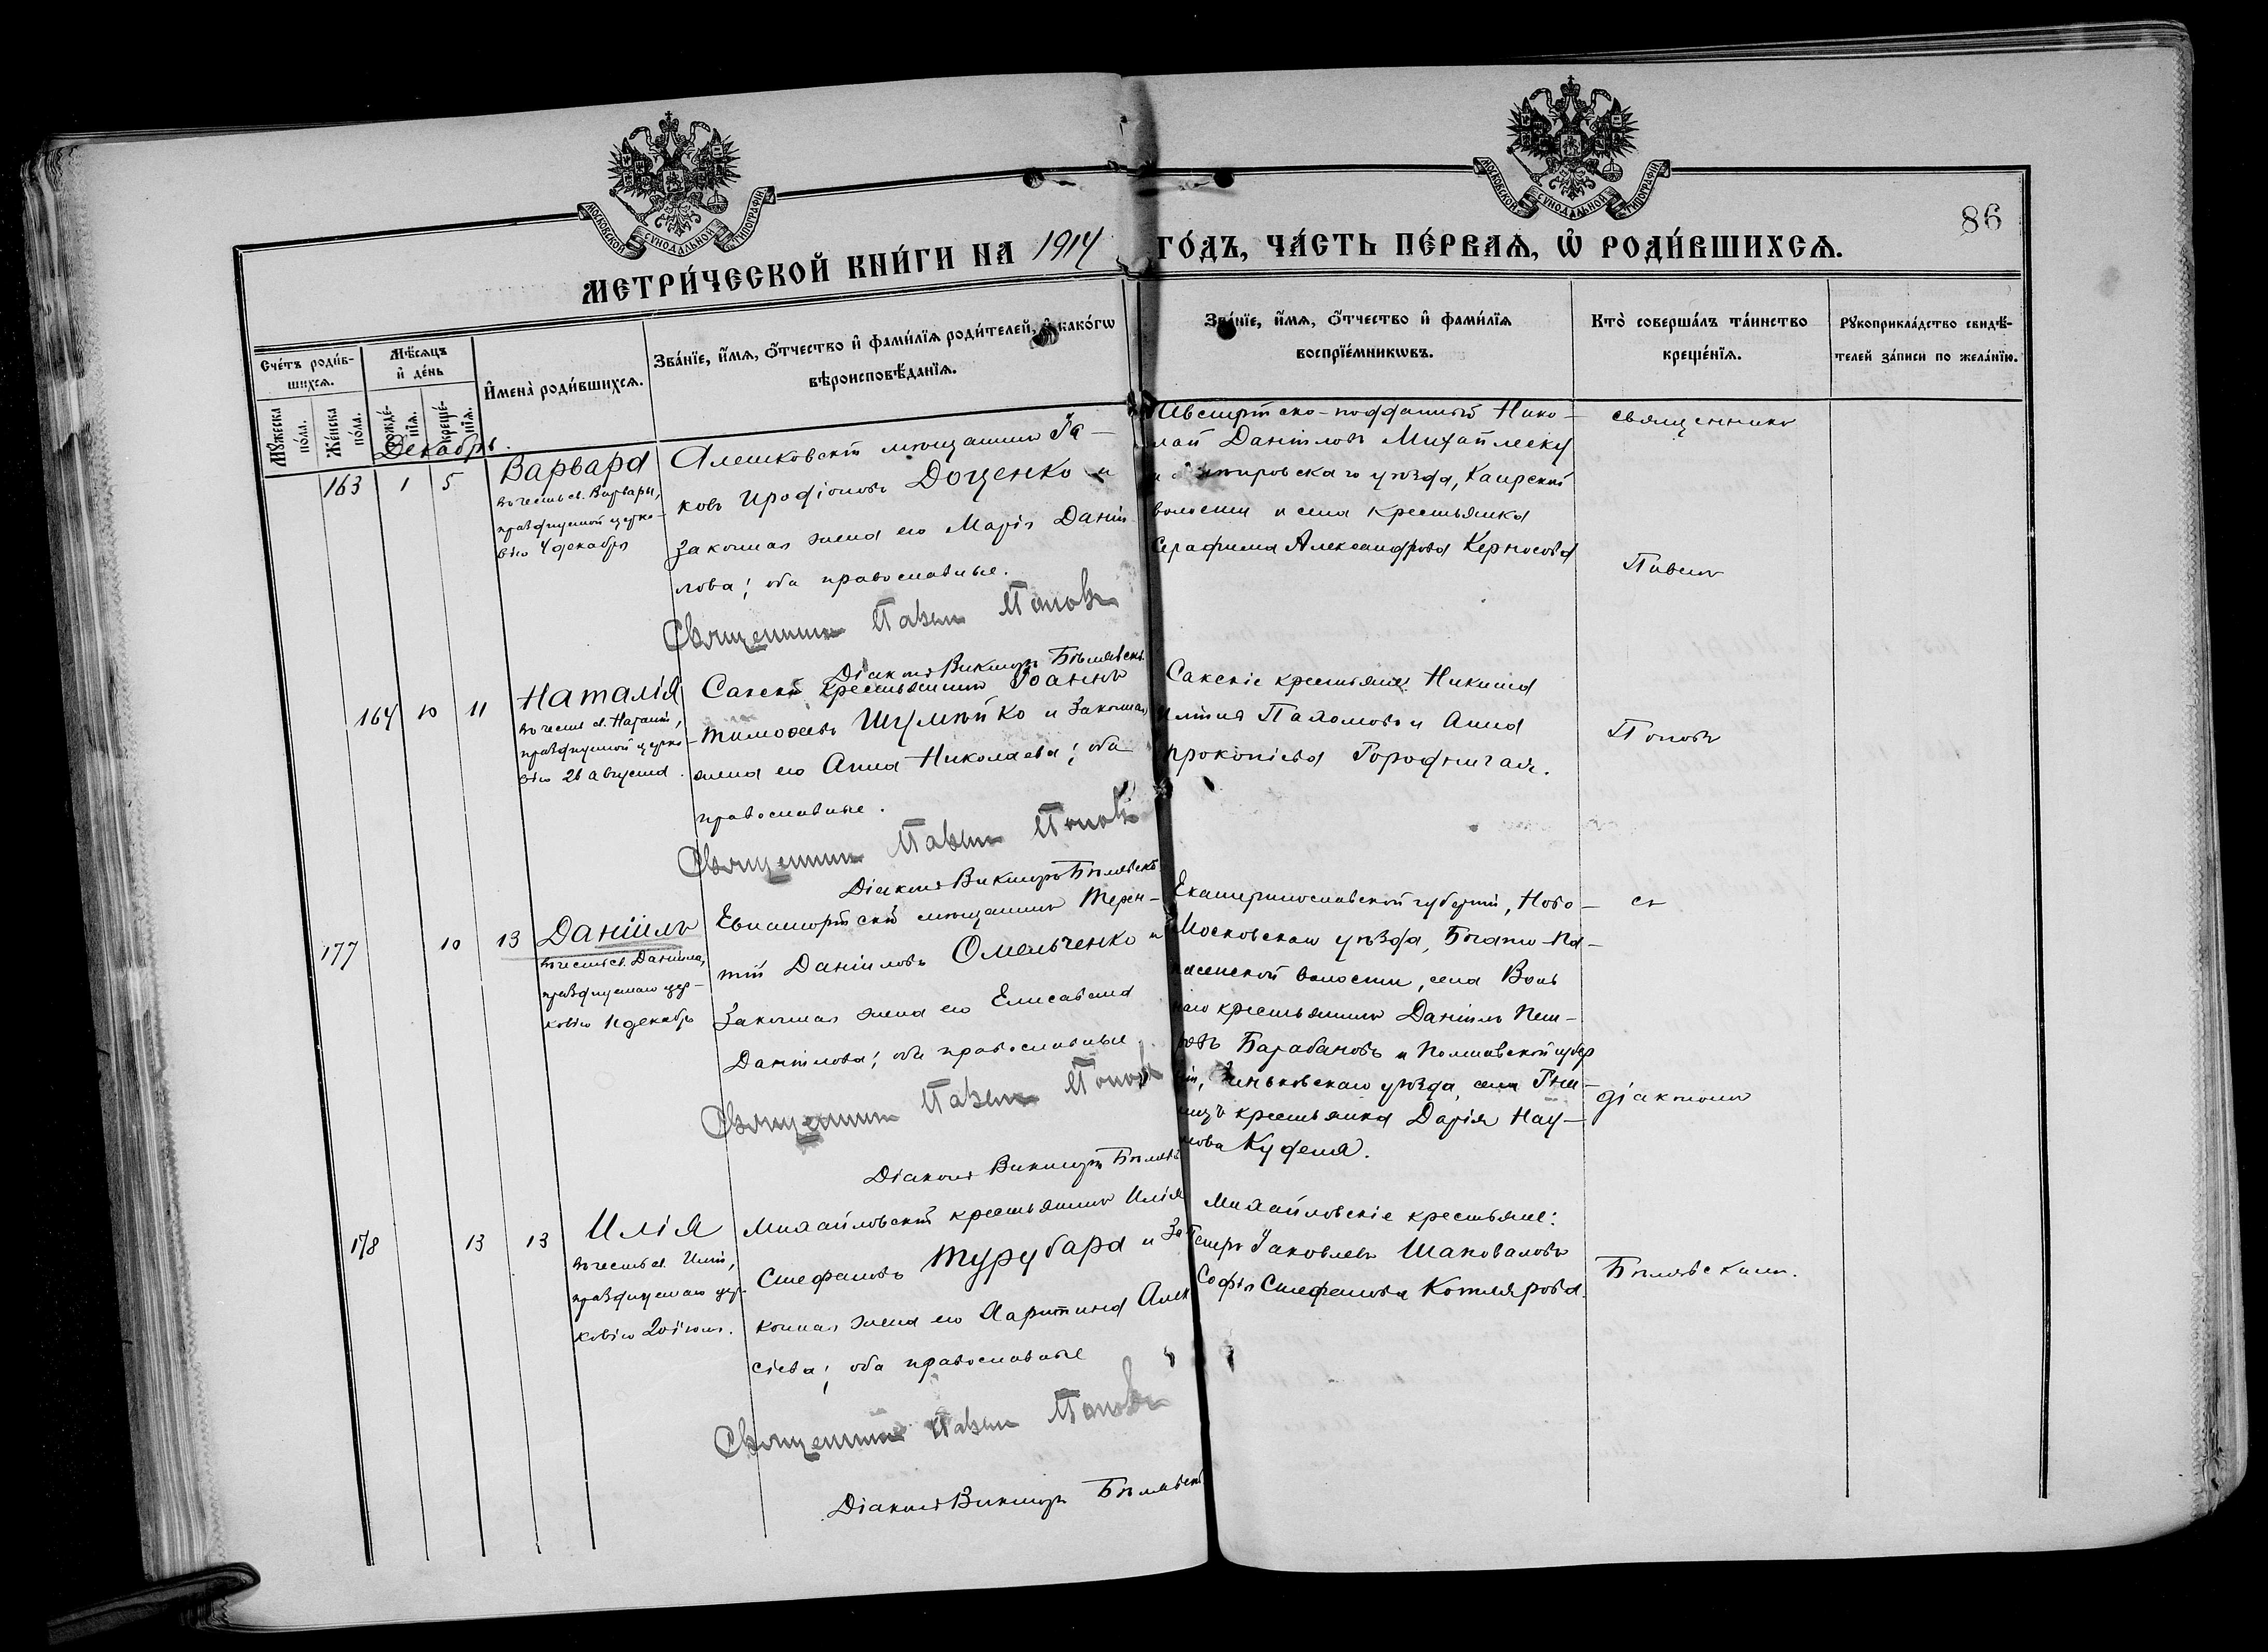 МОСКОВСКОЙ СѴНОДАЛЬНОЙ ТИПОГРАФІИ
МОСКОВСКОЙ СѴНОДАЛЬНОЙ ТИПОГРАФІИ
86
МЕТРИ́ЧЕСКОЙ КНИ́ГИ НА 1914 ГО́ДЪ, ЧА́СТЬ ПЕ́РВАѦ, Ѡ҆ РОДИ́ВШИХСѦ.
Сче́тъ роди́в-
шихсѧ.
Мꙋжеска по́ла.
Же́нска по́ла.
Мѣ́сѧцъ и҆ де́нь
рожде́-нїѧ.
креще́-нїѧ.
И҆мена̀ роди́вшихсѧ.
Зва́нїе, и҆́мѧ, ѻ҆́тчество и҆ фами́лїѧ роди́телей, и҆ како́гѡ
вѣроисповѣ́данїѧ.
Зва́нїе, и҆́мѧ, ѻ҆́тчество и҆ фами́лїѧ
воспрїе́мникѡвъ.
Кто̀ соверша́лъ та́инство
креще́нїѧ.
Рꙋкоприкла́дство свидѣ́-
телей за́писи по жела́нїю.
Декабрь.
163 1 5
Варвара
въ честь св. Варвары,
празднуемой церко-
вію 4 декабря
Алешковскій мѣщанинъ Іа-
ковъ Иродіоновъ Доценко и
законная жена его Марія Даніи-
лова; оба православные.
Священникъ Павелъ Поповъ
Діаконъ Викторъ Бѣлявскій
Николай Даніиловъ Михайлеску
уѣзда, Каирской
волости и села крестьянка
Серафима Александрова Керносова
Священникъ
Павелъ
164 10 11
Наталія
въ честь св. Наталіи,
празднуемой церко-
вію 26 августа.
Сакскій крестьянинъ Іоаннъ
Тимофеевъ Шулейко и законная
жена его Анна Николаева; оба
православные.
Священникъ Павелъ Поповъ
Діаконъ Викторъ Бѣлявскій
Сакскіе крестьяне: Никита
Пахомовъ и Анна
Прокопіева Городничая.
Поповъ
177 10 13
Даніилъ
въ честь св. Даніила,
празднуемаго цер-
ковію 11 декабря
Евпаторійскій мѣщанинъ Терен-
тій Даніиловъ Омельченко и
законная жена его Елисавета
Даніилова; оба православные.
Священникъ Павелъ Поповъ
Діаконъ Викторъ Бѣлявскій
Екатеринославской губерніи, Ново-
московскаго уѣзда,
волости, села Воль
наго крестьянинъ Даніилъ Пет-
ровъ Барабановъ и Полтавской губер
ніи, Зиньковскаго уѣзда, села
крестьянка Дарія Нау-
мова
съ
діакономъ
178 13 13
Илія
въ честь св. Иліи,
празднуемаго цер-
ковію 20 іюля.
Михайловскій крестьянинъ Илія
Стефановъ Турубара и за
конная жена его Харитина Алек
сіева; оба православные
Священникъ Павелъ Поповъ
Діаконъ Викторъ Бѣлявскій
Михайловскіе крестьяне:
Петръ Іаковлевъ Шаповаловъ
Софія Стефанова Котлярова.
Бѣлявскимъ.